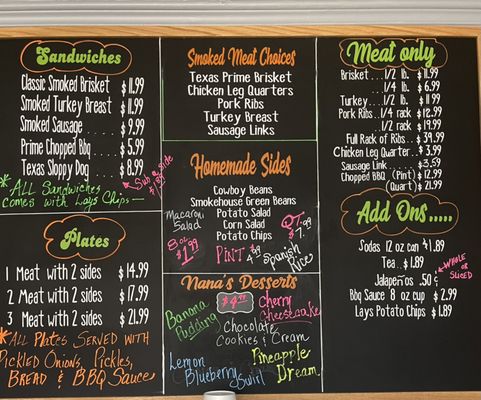 Sandwiches
Classic Smoked Brisket $11.99
Smoked Turkey Breast $11.99
Smoked Sausage ..... $9.99
Prime Chopped BBQ ..... $5.99
Texas Sloppy Dog ..... $8.99
Sub a side $1.39
*ALL Sandwiches
comes with Lays Chips
Plates
1 Meat with 2 sides $14.99
2 Meat with 2 sides $17.99
3 Meat with 2 sides $21.99
*All Plates Served with
Pickled Onions, Pickles,
Bread & BBQ Sauce
Smoked Meat Choices
Texas Prime Brisket
Chicken Leg Quarters
Pork Ribs
Turkey Breast
Sausage Links
Homemade Sides
Cowboy Beans
Smokehouse Green Beans
Macaroni
Salad
Potato Salad
Corn Salad
Potato Chips
8oz
$1.99
PINT $
QT
$7.99
Spanish
Rice
Nana's Desserts
$4.99
Banana
Pudding
Cherry
Cheesecake
Chocolate
Cookies & Cream
Lemon
Blueberry
Swirl
Pineapple
Dream
Meat only
Brisket.... 1/2 lb. $11.99
1/4 lb. $6.99
Turkey..... 1/2 lb $11.99
Pork Ribs..1/4 rack $12.99
1/2 rack $19.99
Full Rack of Ribs $39.99
Chicken Leg Quarter . $3.99
Sausage Link ..... $3.59
Chopped BBQ (Pint) $12.99
(Quart) $21.99
Add Ons.....
Sodas 12 oz can $1.89
Tea..$1.89
Jalapeños .50¢
whole or
sliced
Bbq Sauce 8 oz cup $2.99
Lays Potato Chips $1.89